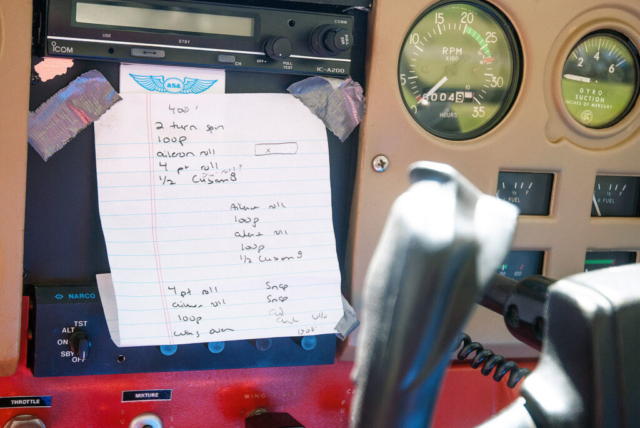 COMM
USE
STBY
CHAN
OFF
PULL
TEST
ICOM
IC-A200
400'
2 turn spin
loop
aileron roll
x
4 pt roll
1/2 Cuban 8
Aileron roll
loop
aileron roll
loop
1/2 Cuban 8
4 pt roll
Snap
aileron roll
Snap
loop
wing over
NARCO
TST
ALT
ON
SBY
OFF
THROTTLE
MIXTURE
WING
10
15
20
25
5
30
35
RPM
X100
HOURS
2
4
6
GYRO
SUCTION
INCHES OF MERCURY
FUEL
FUEL